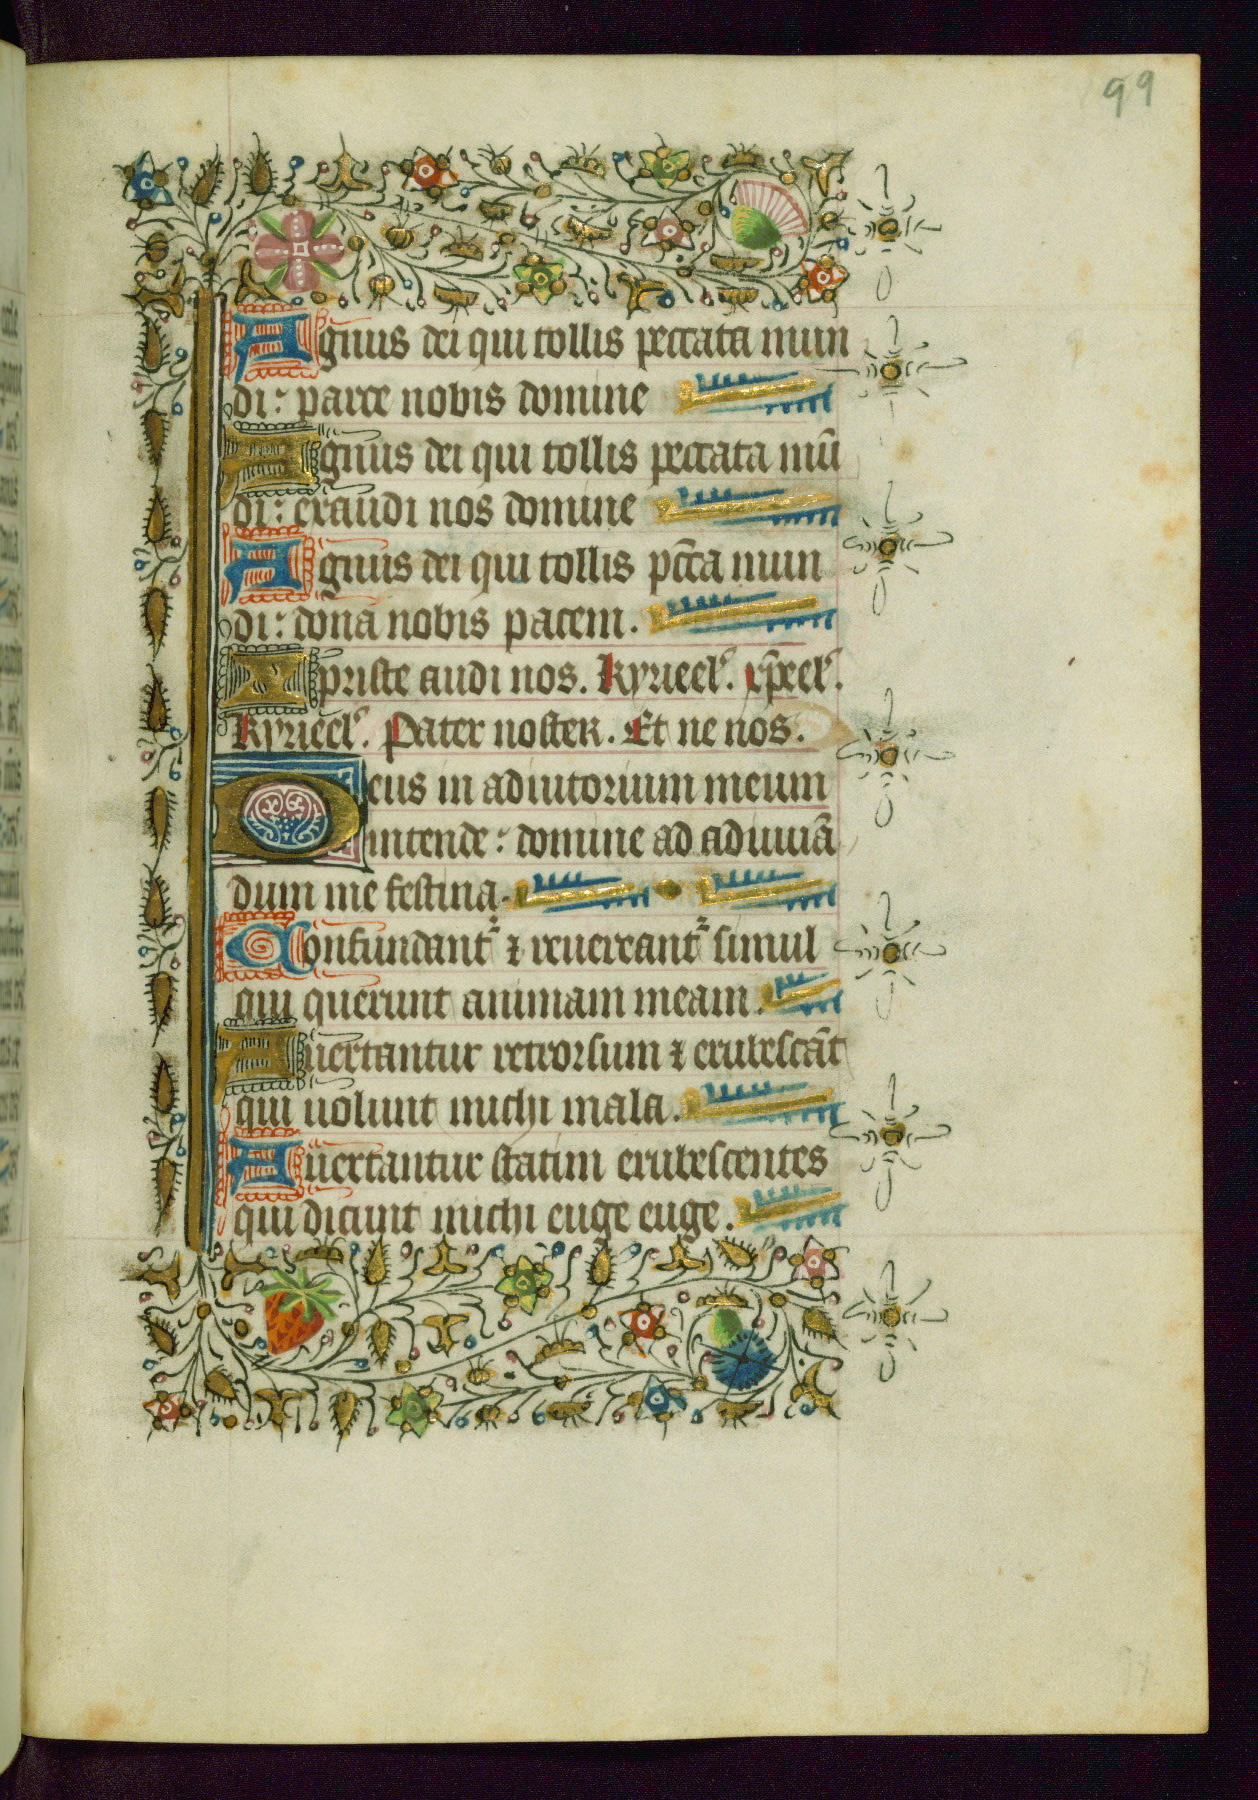 99
Agnus dei qui tollis peccata mun
di: parce nobis domine
Agnus dei qui tollis peccata mū
di: exaudi nos domine
Agnus dei qui tollis pc̄ca mun
di: dona nobis pacem.
Xpriste audi nos. Kyrieel'. xp̄eel'.
Kyrieel'. Pater noster. Et ne nos.
Deus in adiutorium meum
intende: domine ad adiuuā
dum me festina.
Confundant' ⁊ reuereant' simul
qui querunt animam meam.
Auertantur retrorsum ⁊ erubescāt
qui uolunt michi mala.
Auertantur statim erubescentes
qui dicunt michi euge euge.